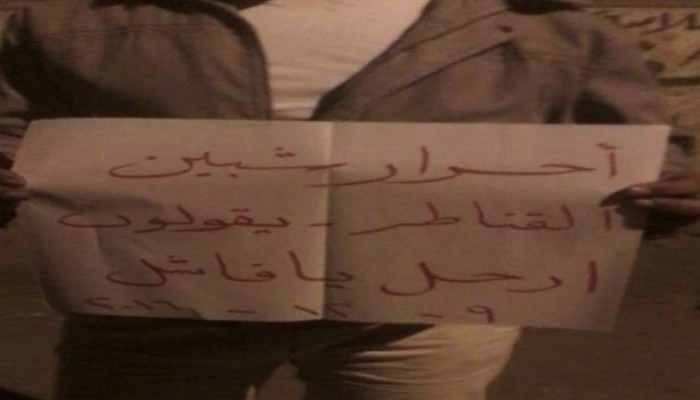 أحرار شبين
القناطر - يقولون
ارحل يا فاشل
٩ - ١٢ - ٢٠١٦